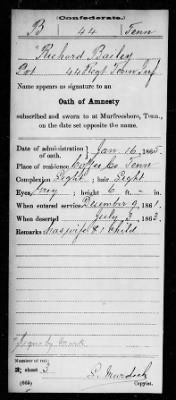 (Confederate.)
B 44 Tenn
Richard Bailey
Pvt 44 Regt Tenn Inf
Name appears as signature to an
Oath of Amnesty
subscribed and sworn to at Murfreesboro, Tenn.,
on the date set opposite the name.
Date of administration of oath, Jan 16, 1865.
Place of residence Coffee Co Tenn
Complexion Light; hair Light
Eyes Gray; height 6 ft. – in.
When entered service December 9, 1861
When deserted July 3, 1863.
Remarks Has wife & 1 Child
Signs by mark
Number of roll:
sheet 3
Murdoch
Copyist.